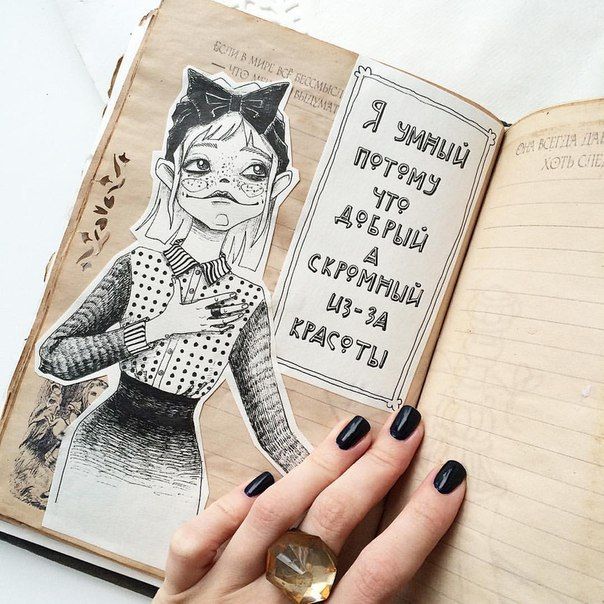 ЕСЛИ В МИРЕ ВСЁ БЕССМЫСЛ
— ЧТО МЕ ВЫДУМАТ
Я УМНЫЙ
ПОТОМУ
ЧТО
ДОБРЫЙ
А
СКРОМНЫЙ
ИЗ-ЗА
КРАСОТЫ
ОНА ВСЕГДА ДА
ХОТЬ СЛЕ